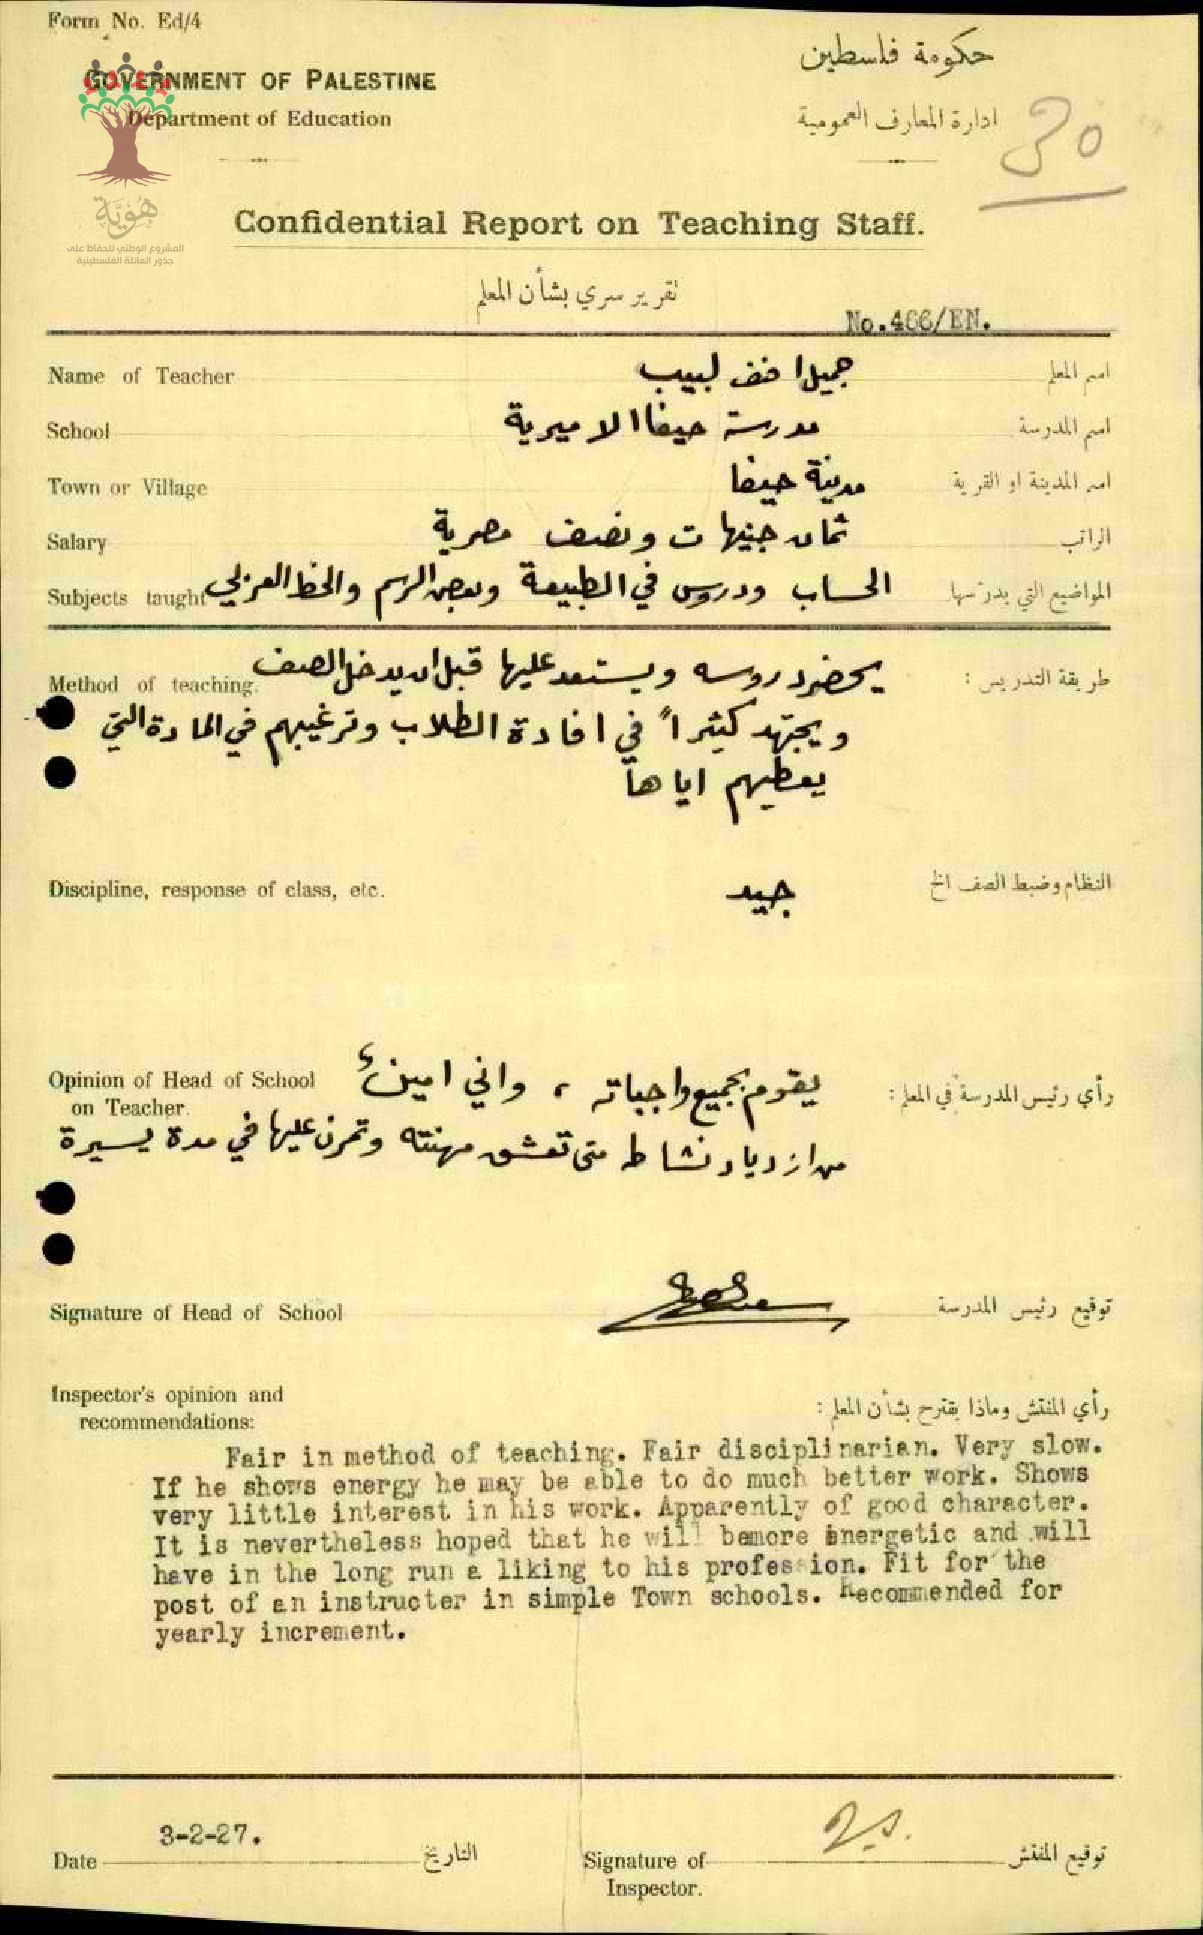 Form No. Ed/4
GOVERNMENT OF PALESTINE
Department of Education
حكومة فلسطين
ادارة المعارف العمومية
30
هُوِيَّة
المشروع الوطني للحفاظ على
جذور العائلة الفلسطينية
Confidential Report on Teaching Staff.
تقرير سري بشأن المعلم
No.466/EN.
Name of Teacher جميل افندي لبيب اسم المعلم
School مدرسة حيفا الاميرية اسم المدرسة
Town or Village مدينة حيفا اسم المدينة او القرية
Salary ثمان جنيهات ونصف مصرية الراتب
Subjects taught الحساب ودروس في الطبيعة وبعض الرسم والخط العربي المواضيع التي يدرسها
Method of teaching. يحضر دروسه ويستعد عليها قبل ان يدخل الصف طريقة التدريس :
ويجتهد كثيراً في افادة الطلاب وترغيبهم في المادة التي
يعطيهم اياها
Discipline, response of class, etc. جيد النظام وضبط الصف الخ
Opinion of Head of School يقوم بجميع واجباته ، واني امين رأي رئيس المدرسة في المعلم :
on Teacher.
من ازدياد نشاطه متى تعشق مهنته وتمرن عليها في مدة يسيرة
Signature of Head of School توقيع رئيس المدرسة
Inspector's opinion and رأي المفتش وماذا يقترح بشأن المعلم :
recommendations:
Fair in method of teaching. Fair disciplinarian. Very slow.
If he shows energy he may be able to do much better work. Shows
very little interest in his work. Apparently of good character.
It is nevertheless hoped that he will bemore energetic and will
have in the long run a liking to his profession. Fit for the
post of an instructer in simple Town schools. Recommended for
yearly increment.
Date 3-2-27. التاريخ
Signature of توقيع المفتش
Inspector.